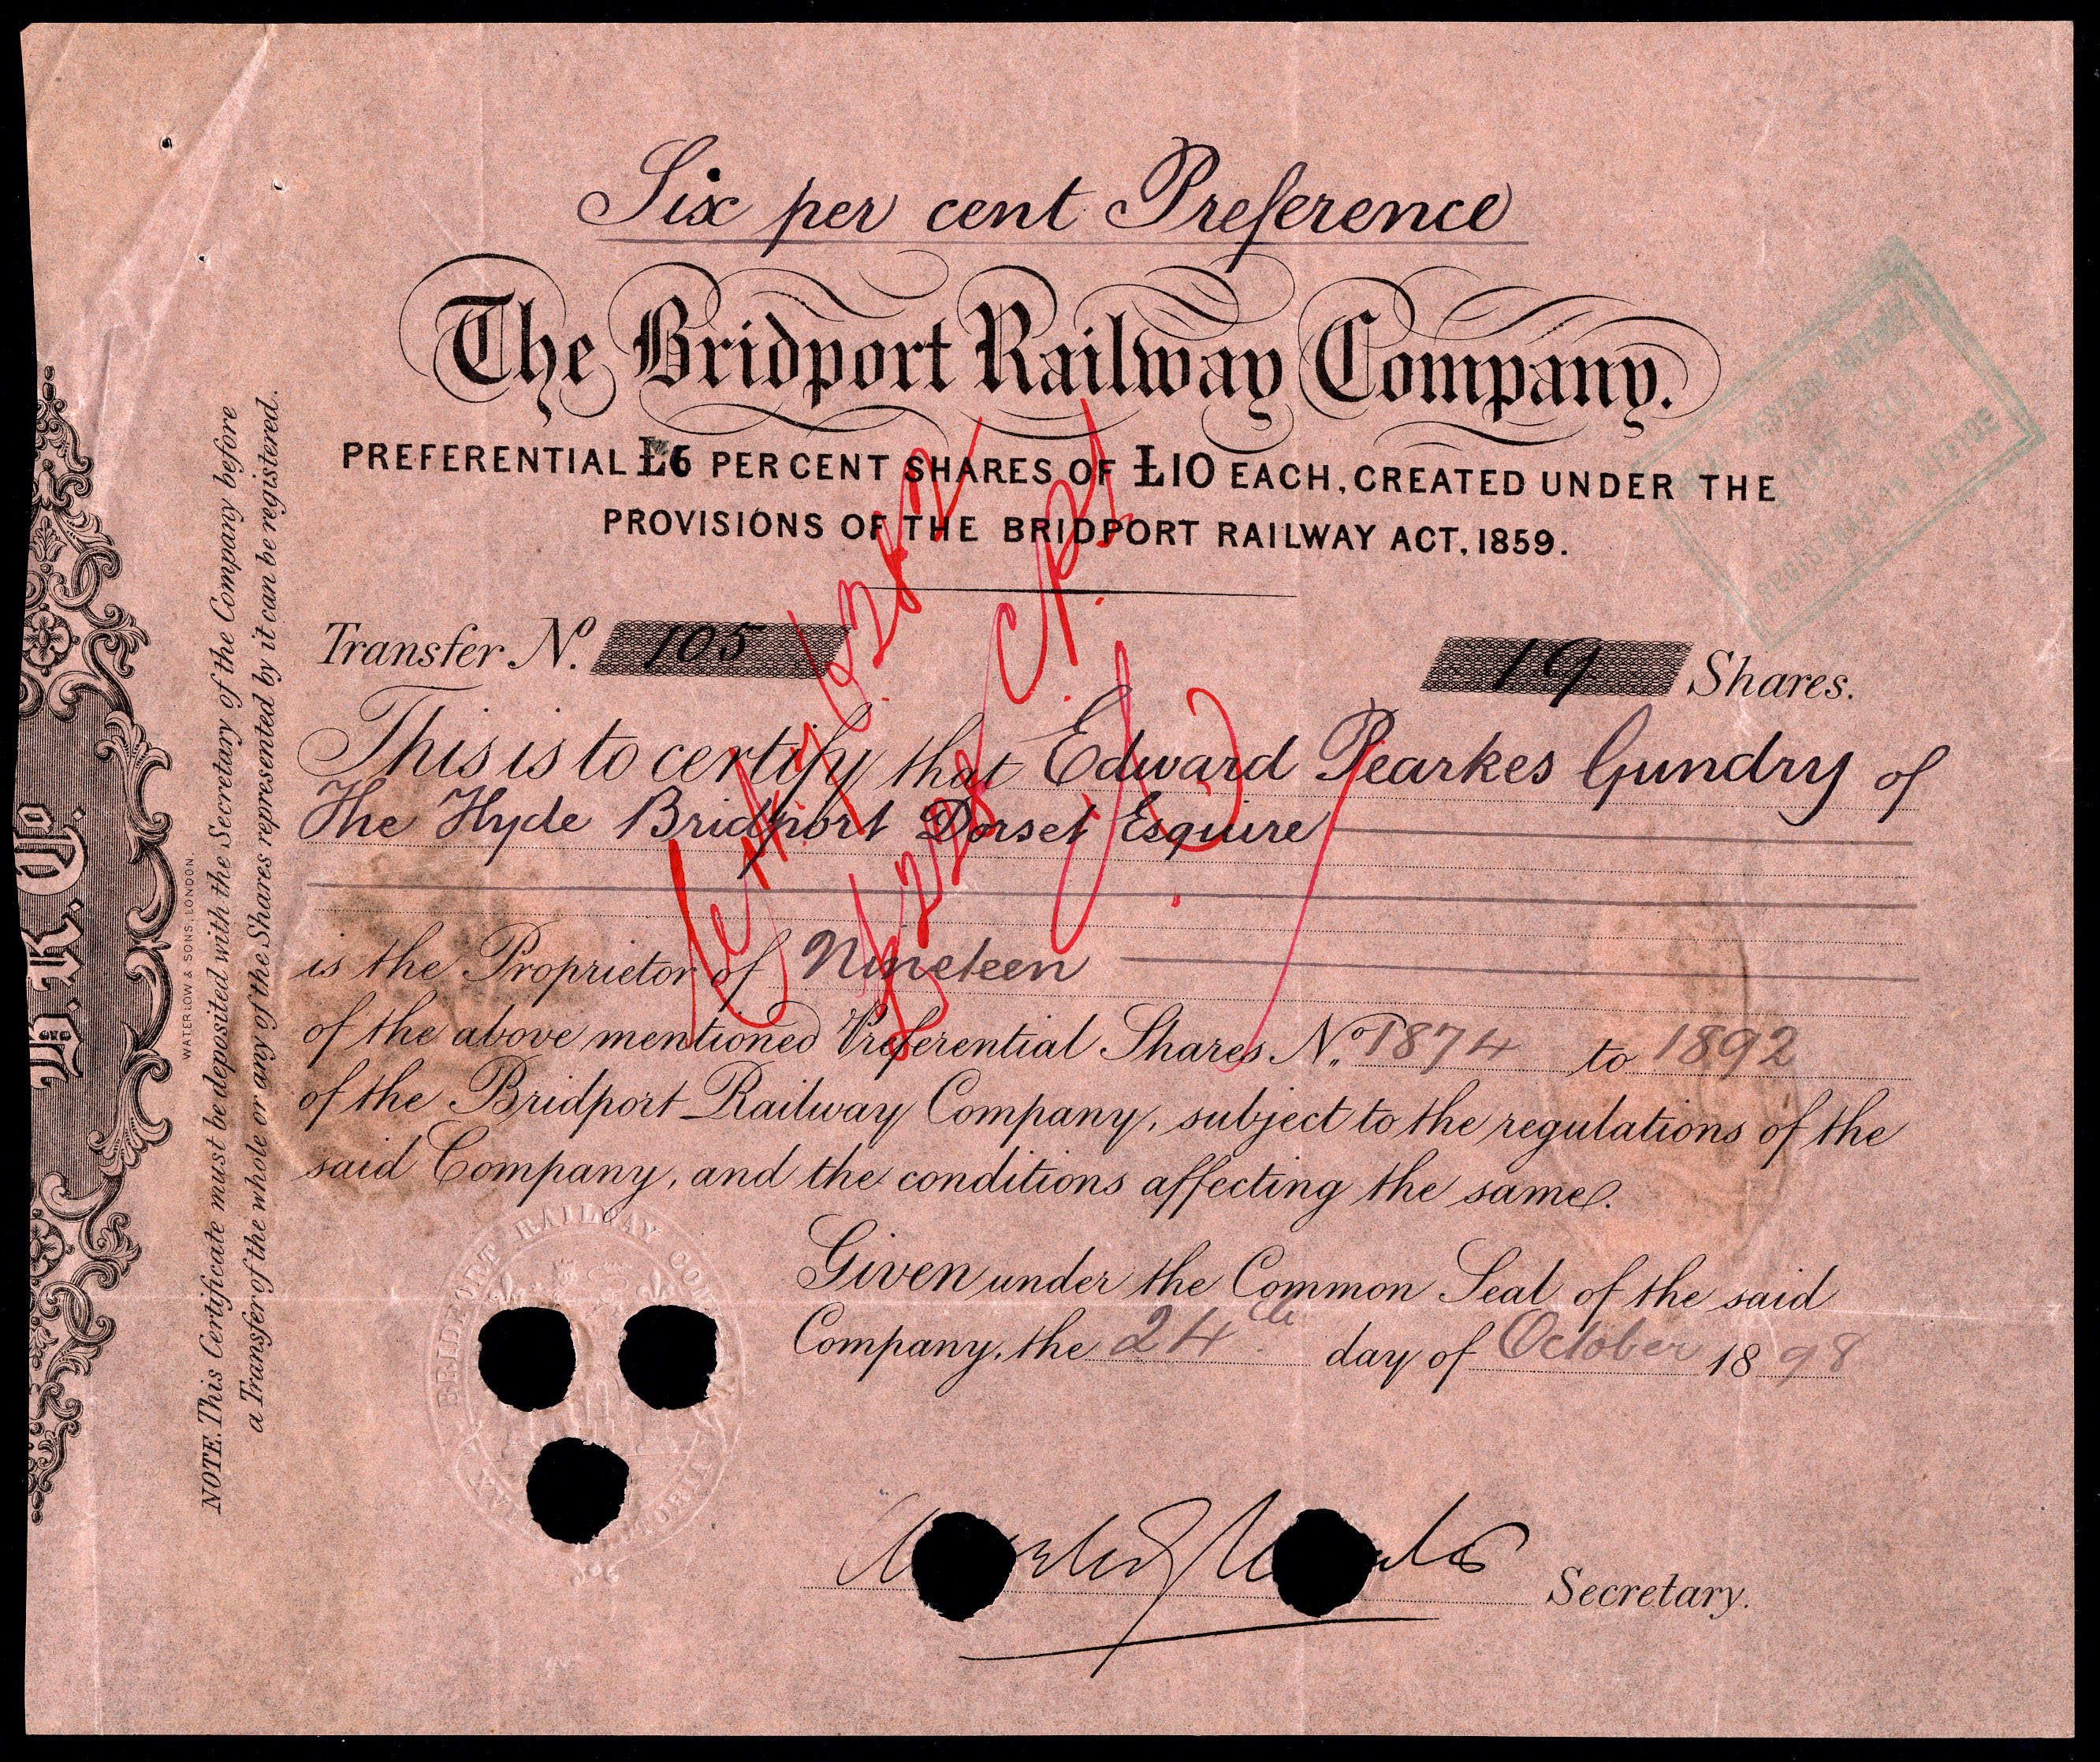 Six per cent Preference
The Bridport Railway Company.
PREFERENTIAL £6 PER CENT SHARES OF £10 EACH, CREATED UNDER THE
PROVISIONS OF THE BRIDPORT RAILWAY ACT, 1859.
Transfer No. 105
19 Shares.
This is to certify that Edward Pearkes Gundry of
The Hyde Bridport Dorset Esquire
is the Proprietor of Nineteen
of the above mentioned Preferential Shares No. 1874 to 1892
of the Bridport Railway Company, subject to the regulations of the
said Company, and the conditions affecting the same.
Given under the Common Seal of the said
Company, the 24th day of October 1898
Secretary.
BRIDPORT RAILWAY
NOTE. This Certificate must be deposited with the Secretary of the Company before
a Transfer of the whole or any of the Shares represented by it can be registered.
WATERLOW & SONS LONDON.
B.R.C.